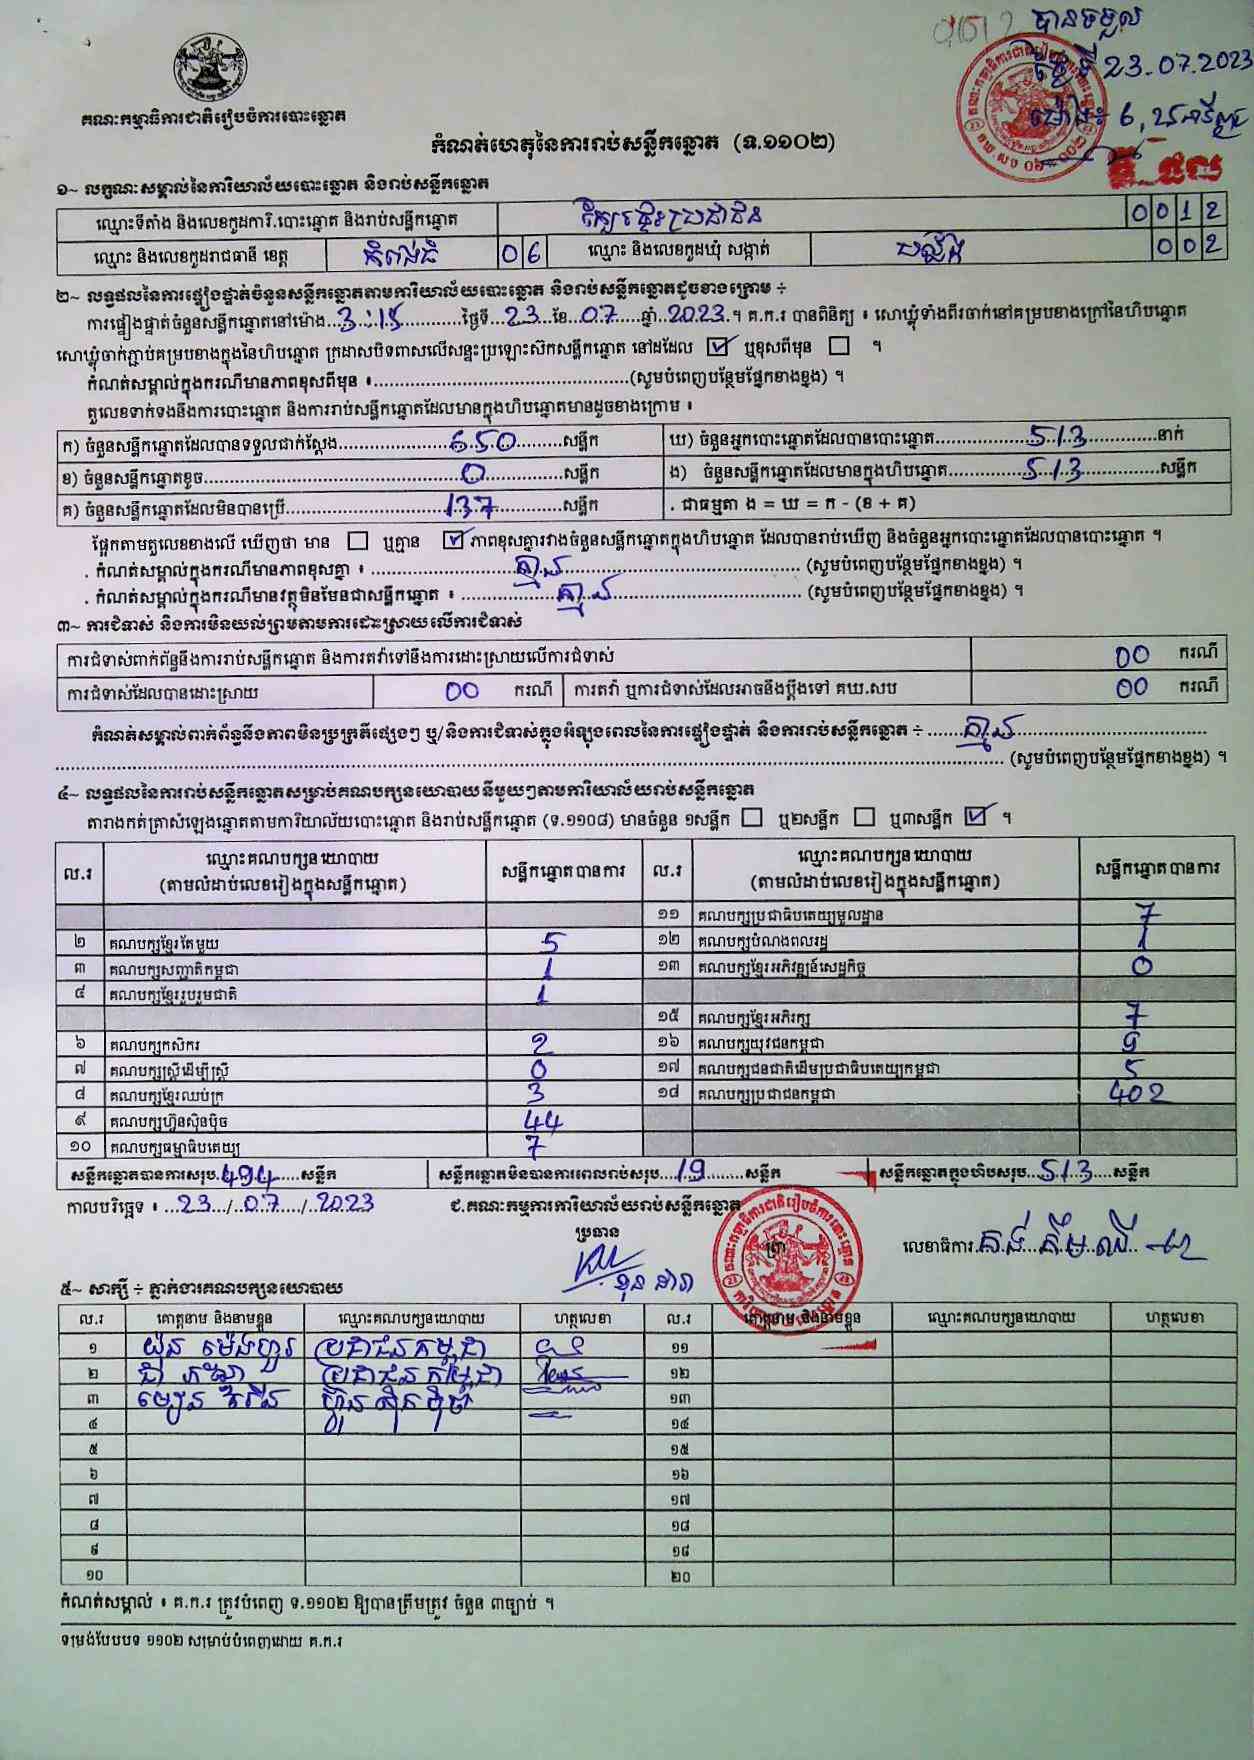 បានទទួល
ថ្ងៃទី 23.07.2023
ម៉ោង: 6,
គណៈកម្មាធិការជាតិរៀបចំការបោះឆ្នោត
កំណត់ហេតុនៃការរាប់សន្លឹកឆ្នោត (ទ.១១០២)
១~ លក្ខណៈសម្គាល់នៃការិយាល័យបោះឆ្នោត និងរាប់សន្លឹកឆ្នោត
ឈ្មោះទីតាំង និងលេខកូដការិ.បោះឆ្នោត និងរាប់សន្លឹកឆ្នោត 0012
ឈ្មោះ និងលេខកូដរាជធានី ខេត្ត កំពង់ធំ 06 ឈ្មោះ និងលេខកូដឃុំ សង្កាត់ 002
២~ លទ្ធផលនៃការផ្ទៀងផ្ទាត់ចំនួនសន្លឹកឆ្នោតតាមការិយាល័យបោះឆ្នោត និងរាប់សន្លឹកឆ្នោតដូចខាងក្រោម ÷
ការផ្ទៀងផ្ទាត់ចំនួនសន្លឹកឆ្នោតនៅម៉ោង 3:15 ថ្ងៃទី 23 ខែ 07 ឆ្នាំ 2023 ។ គ.ក.រ បានពិនិត្យ ៖ សោឃ្លុំទាំងពីរចាក់នៅគម្របខាងក្រៅនៃហិបឆ្នោត
សោឃ្លុំចាក់ភ្ជាប់គម្របខាងក្នុងនៃហិបឆ្នោត ក្រដាសបិទពាសលើសន្ទះប្រឡោះស៊កសន្លឹកឆ្នោត នៅដដែល ☑ ឬខុសពីមុន ☐ ។
កំណត់សម្គាល់ក្នុងករណីមានភាពខុសពីមុន ៖ (សូមបំពេញបន្ថែមផ្នែកខាងខ្នង) ។
តួលេខទាក់ទងនឹងការបោះឆ្នោត និងការរាប់សន្លឹកឆ្នោតដែលមានក្នុងហិបឆ្នោតមានដូចខាងក្រោម ៖
ក) ចំនួនសន្លឹកឆ្នោតដែលបានទទួលជាក់ស្តែង 650 សន្លឹក ឃ) ចំនួនអ្នកបោះឆ្នោតដែលបានបោះឆ្នោត 513 នាក់
ខ) ចំនួនសន្លឹកឆ្នោតខូច 0 សន្លឹក ង) ចំនួនសន្លឹកឆ្នោតដែលមានក្នុងហិបឆ្នោត 513 សន្លឹក
គ) ចំនួនសន្លឹកឆ្នោតដែលមិនបានប្រើ 137 សន្លឹក . ជាធម្មតា ង = ឃ = ក - (ខ + គ)
ផ្អែកតាមតួលេខខាងលើ ឃើញថា មាន ☐ ឬគ្មាន ☑ ភាពខុសគ្នារវាងចំនួនសន្លឹកឆ្នោតក្នុងហិបឆ្នោត ដែលបានរាប់ឃើញ និងចំនួនអ្នកបោះឆ្នោតដែលបានបោះឆ្នោត ។
. កំណត់សម្គាល់ក្នុងករណីមានភាពខុសគ្នា ៖ គ្មាន (សូមបំពេញបន្ថែមផ្នែកខាងខ្នង) ។
. កំណត់សម្គាល់ក្នុងករណីមានវត្ថុមិនមែនជាសន្លឹកឆ្នោត ៖ គ្មាន (សូមបំពេញបន្ថែមផ្នែកខាងខ្នង) ។
៣~ ការជំទាស់ និងការមិនយល់ព្រមតាមការដោះស្រាយលើការជំទាស់
ការជំទាស់ពាក់ព័ន្ធនឹងការរាប់សន្លឹកឆ្នោត និងការតវ៉ាទៅនឹងការដោះស្រាយលើការជំទាស់ 00 ករណី
ការជំទាស់ដែលបានដោះស្រាយ 00 ករណី ការតវ៉ា ឬការជំទាស់ដែលអាចនឹងប្តឹងទៅ គឃ.សប 00 ករណី
កំណត់សម្គាល់ពាក់ព័ន្ធនឹងភាពមិនប្រក្រតីផ្សេងៗ ឬ/និងការជំទាស់ក្នុងអំឡុងពេលនៃការផ្ទៀងផ្ទាត់ និងការរាប់សន្លឹកឆ្នោត ÷ គ្មាន
(សូមបំពេញបន្ថែមផ្នែកខាងខ្នង) ។
៤~ លទ្ធផលនៃការរាប់សន្លឹកឆ្នោតសម្រាប់គណបក្សនយោបាយនីមួយៗតាមការិយាល័យរាប់សន្លឹកឆ្នោត
តារាងកត់ត្រាសំឡេងឆ្នោតតាមការិយាល័យបោះឆ្នោត និងរាប់សន្លឹកឆ្នោត (ទ.១១០៨) មានចំនួន ១សន្លឹក ☐ ឬ២សន្លឹក ☐ ឬ៣សន្លឹក ☑ ។
ល.រ ឈ្មោះគណបក្សនយោបាយ (តាមលំដាប់លេខរៀងក្នុងសន្លឹកឆ្នោត) សន្លឹកឆ្នោតបានការ ល.រ ឈ្មោះគណបក្សនយោបាយ (តាមលំដាប់លេខរៀងក្នុងសន្លឹកឆ្នោត) សន្លឹកឆ្នោតបានការ
១១ គណបក្សប្រជាធិបតេយ្យមូលដ្ឋាន 7
២ គណបក្សខ្មែរតែមួយ 5 ១២ គណបក្សបំណងពលរដ្ឋ 1
៣ គណបក្សសញ្ជាតិកម្ពុជា 1 ១៣ គណបក្សខ្មែរអភិវឌ្ឍន៍សេដ្ឋកិច្ច 0
៤ គណបក្សខ្មែររួបរួមជាតិ 1
១៥ គណបក្សខ្មែរអភិរក្ស 7
៦ គណបក្សកសិករ 2 ១៦ គណបក្សយុវជនកម្ពុជា 9
៧ គណបក្សស្ត្រីដើម្បីស្ត្រី 0 ១៧ គណបក្សជនជាតិដើមប្រជាធិបតេយ្យកម្ពុជា 5
៨ គណបក្សខ្មែរឈប់ក្រ 3 ១៨ គណបក្សប្រជាជនកម្ពុជា 402
៩ គណបក្សហ៊្វុនស៊ិនប៉ិច 44
១០ គណបក្សធម្មាធិបតេយ្យ 7
សន្លឹកឆ្នោតបានការសរុប 494 សន្លឹក សន្លឹកឆ្នោតមិនបានការពេលរាប់សរុប 19 សន្លឹក សន្លឹកឆ្នោតក្នុងហិបសរុប 513 សន្លឹក
កាលបរិច្ឆេទ ៖ 23/07/2023 ជ.គណៈកម្មការការិយាល័យរាប់សន្លឹកឆ្នោត
ប្រធាន
លេខាធិការ
ឌុន ដារ៉ា
៥~ សាក្សី ÷ ភ្នាក់ងារគណបក្សនយោបាយ
ល.រ គោត្តនាម និងនាមខ្លួន ឈ្មោះគណបក្សនយោបាយ ហត្ថលេខា ល.រ គោត្តនាម និងនាមខ្លួន ឈ្មោះគណបក្សនយោបាយ ហត្ថលេខា
១ ប្រជាជនកម្ពុជា ១១
២ ប្រជាជនកម្ពុជា ១២
៣ ហ៊្វុនស៊ិនប៉ិច ១៣
៤ ១៤
៥ ១៥
៦ ១៦
៧ ១៧
៨ ១៨
៩ ១៩
១០ ២០
កំណត់សម្គាល់ ៖ គ.ក.រ ត្រូវបំពេញ ទ.១១០២ ឱ្យបានត្រឹមត្រូវ ចំនួន ៣ច្បាប់ ។
ទម្រង់បែបបទ ១១០២ សម្រាប់បំពេញដោយ គ.ក.រ